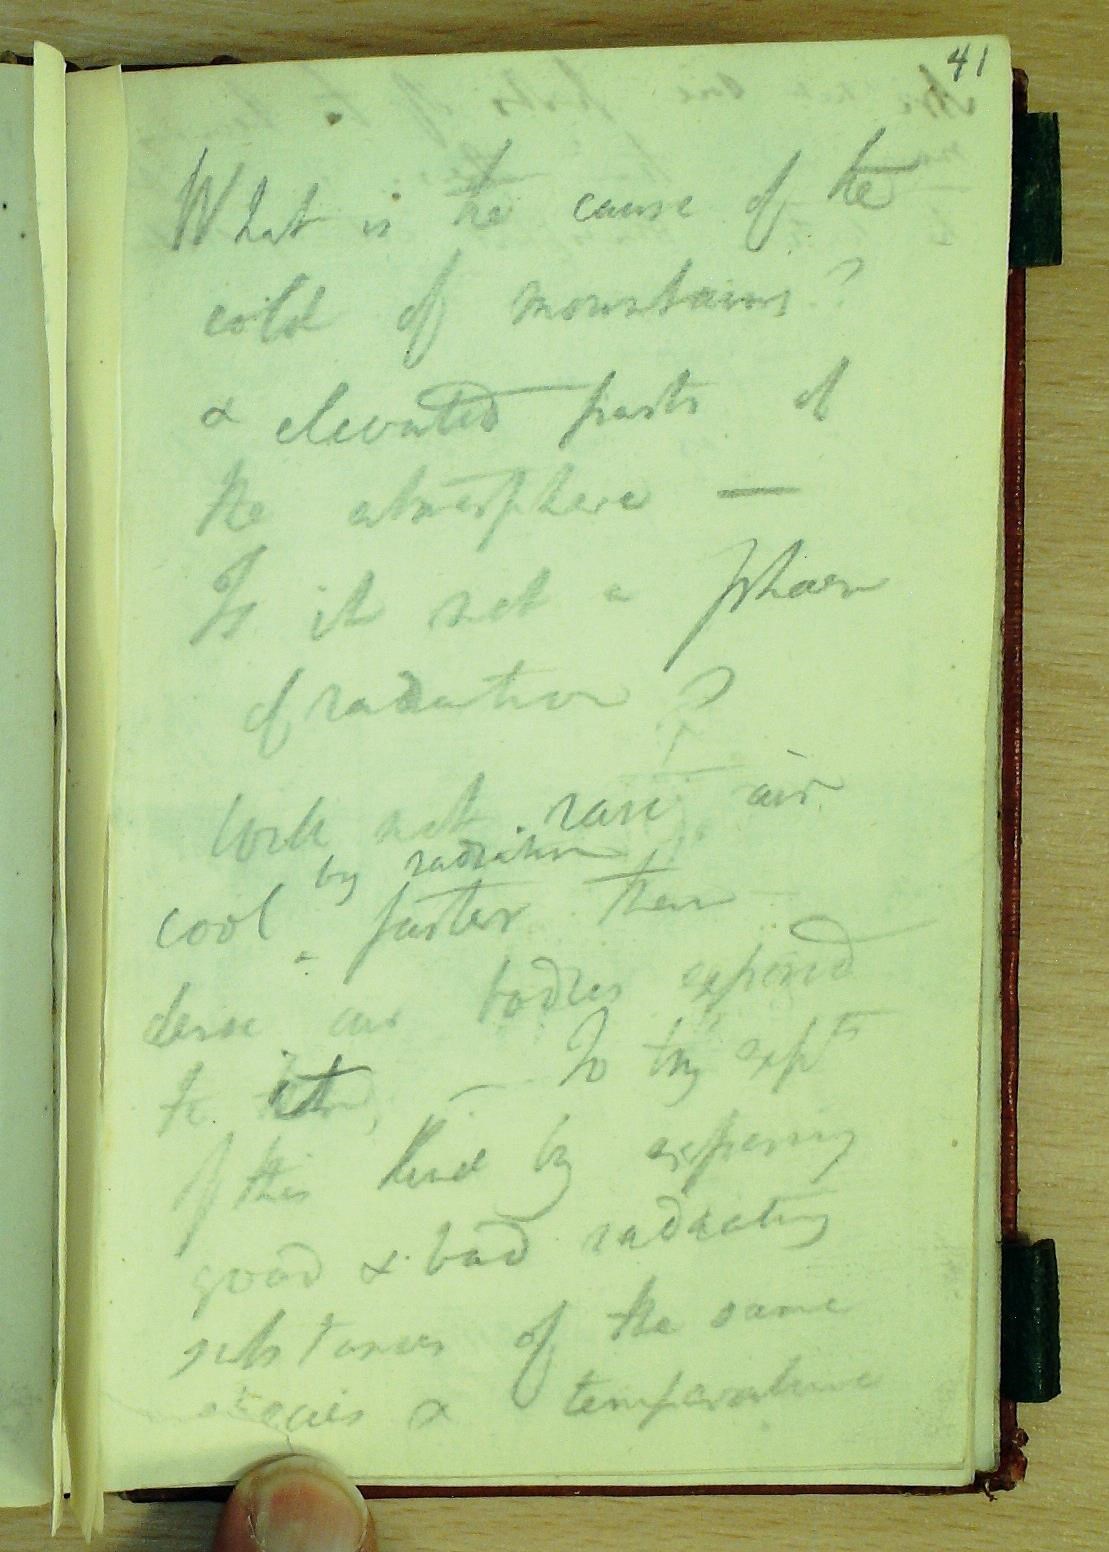 41
What is the cause of the
cold of mountains?
& elevated parts of
the atmosphere —
Is it not a phaen
of radiation ?
not rare air
by radiation
cool ^ faster than
dense air bodies exposed
to it — To try expts
of this kind by exposing
good & bad radiating
substances of the same
species & temperature